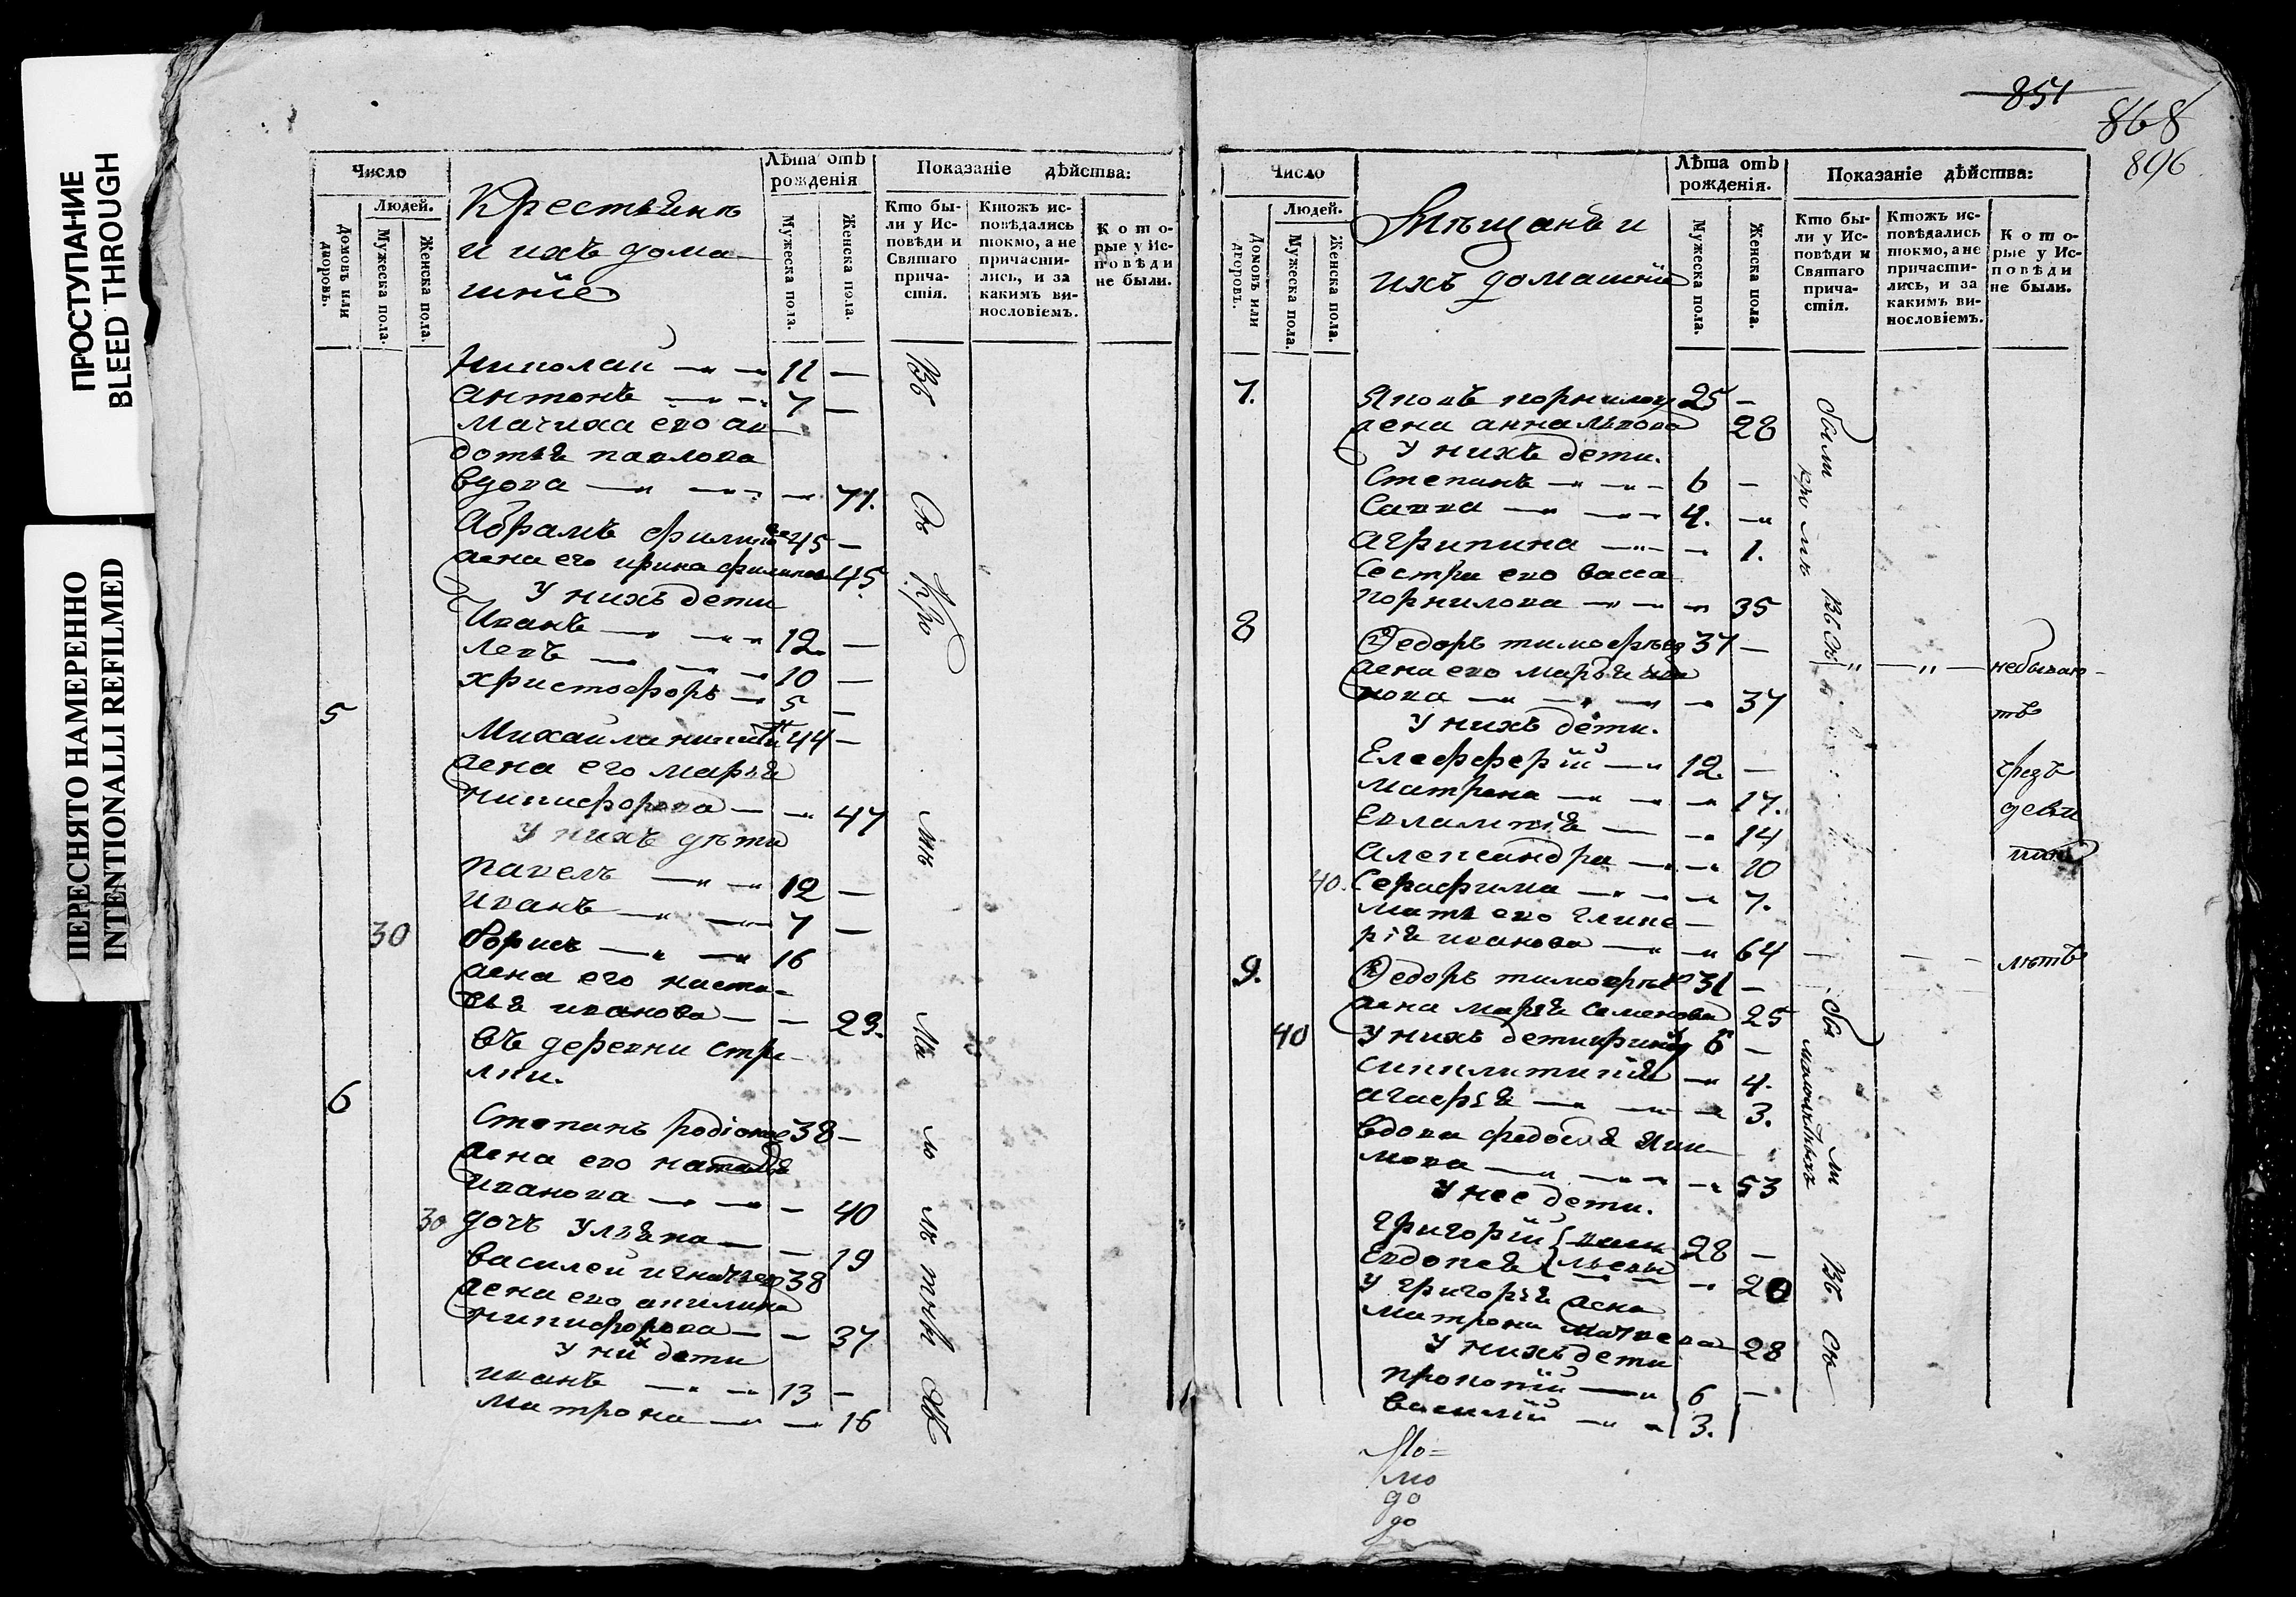 ПРОСТУПАНИЕ
BLEED THROUGH
ПЕРЕСНЯТО НАМЕРЕННО
INTENTIONALLI REFILMED
Число
Людей.
Домовъ или дворовъ.
Мужеска пола.
Женска пола.
Крестьянъ
и ихъ дома
шнїе
Лѣта отъ
рожденія
Мужеска пола.
Женска пола.
Показаніе дѣйства:
Кто бы-
ли у Ис-
повѣди и
Святаго
прича-
стія.
Ктожъ ис-
повѣдались
токмо, а не
причасти-
лись, и за
какимъ ви-
нословіемъ.
Кото-
рые у Ис-
повѣди
не были.
Николай 11
Антонъ 7
Мачиха его ав
дотья павлова
вдова 71.
Абрамъ 45
жена его ирина 45
У нихъ дети
Иванъ 12.
Левъ 10
христофоръ 5
5
Михаила 44
жена его марья
никифорова 47
У нихъ дѣти
павелъ 12
иванъ 7
30 борисъ 16
жена его наста-
сья иванова 23.
въ деревни стре
лки.
6
Степанъ родіонов 38
жена его наталья
иванова 40
30 дочь Ульяна 19
василей игнатьев 38
жена его акилина
никифорова 37
У них дети
иванъ 13
матрона 16
851
868
896
Число
Людей.
Домовъ или дворовъ.
Мужеска пола.
Женска пола.
Мѣщанъ и
ихъ домашнїе
Лѣта отъ
рожденія.
Мужеска пола.
Женска пола.
Показаніе дѣйства:
Кто бы-
ли у Ис-
повѣди и
Святаго
прича-
стія.
Ктожъ ис-
повѣдались
токмо, а не
причасти-
лись, и за
какимъ ви-
нословіемъ.
Кото-
рые у Ис-
повѣди
не были.
7. Яковъ корнилов 25
жена анна львова 28
У нихъ дети.
Степанъ 6
Савва 4.
агрипина 1.
Сестра его васса
корнилова 35
8 Ѳедоръ тимофѣев 37
жена его марья ива
нова 37
У нихъ дети.
Елефферїй 12.
матрена 17.
Евлампія 14
александра 10
40. Серафима 7.
мать его глике
рїя иванова 64
небываю-
тъ
чрезъ
девя
лѣтъ
9. Ѳедоръ тимофѣев 31
жена марья Семенова 25
40 У нихъ дети 6
4.
агафья 3.
вдова федосья яки
мова 53
У нее дети.
григорїй 28
Евдокея 20
У григорья жена
матрона матвеева 28
У нихъ дети
прокопїй 6
василїй 3.